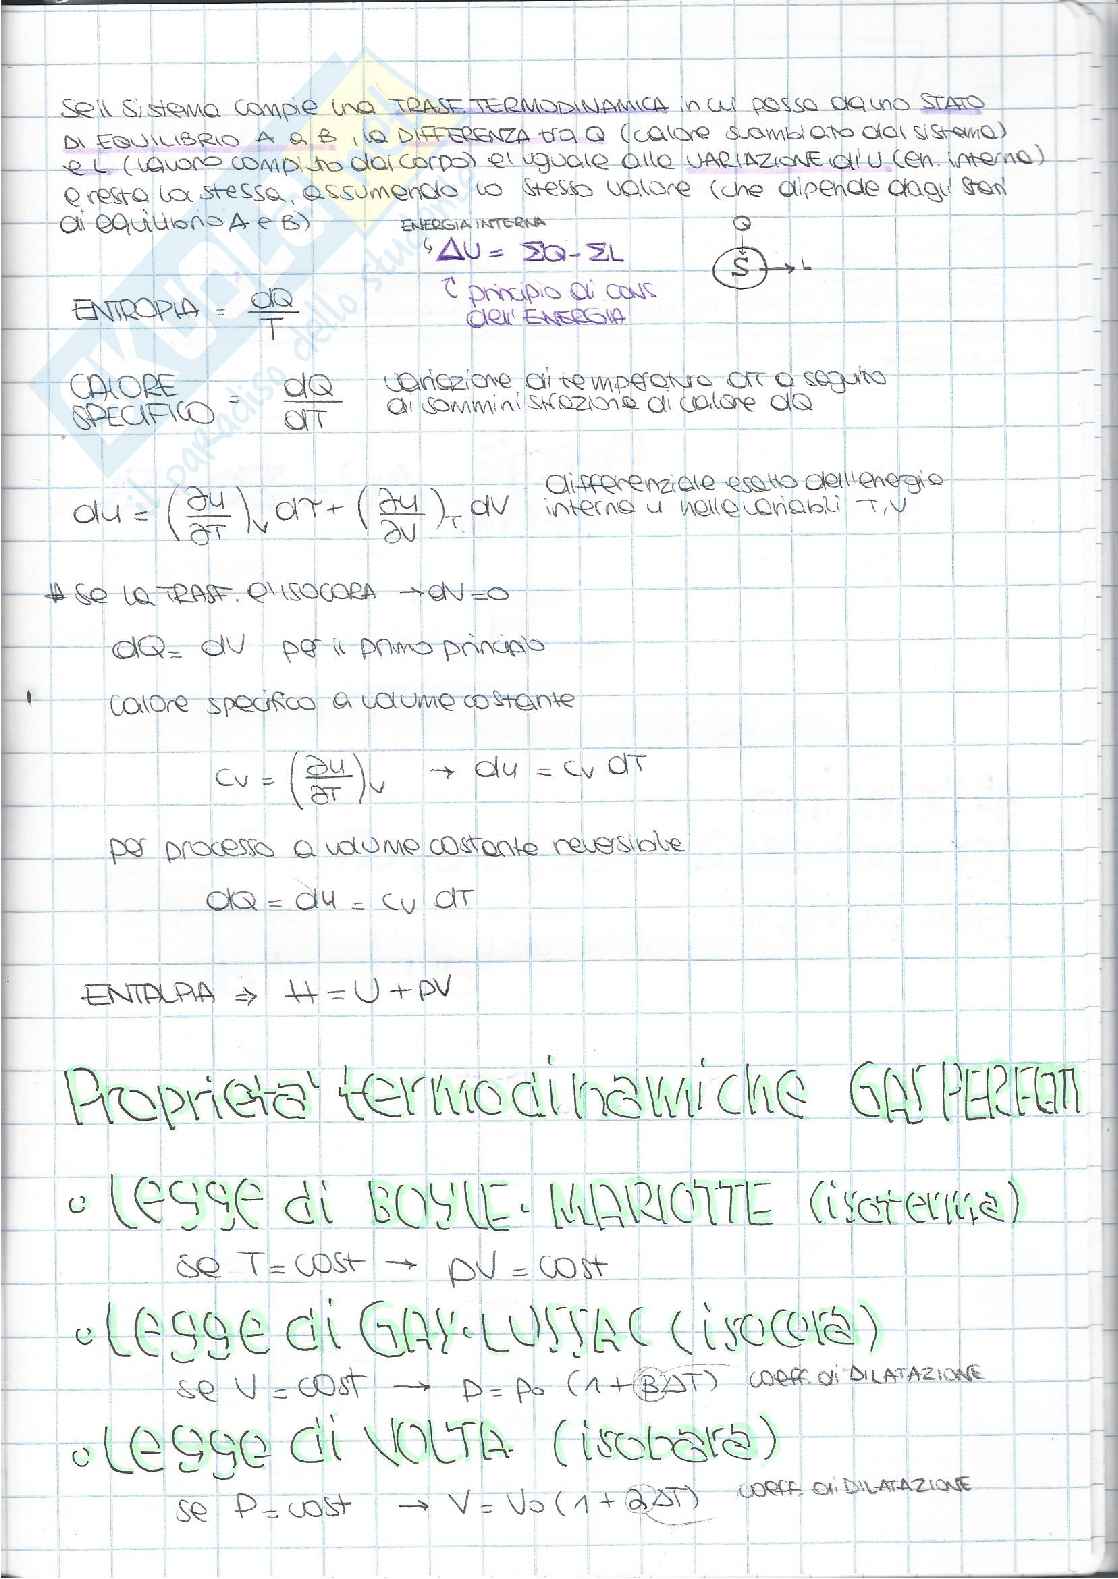 Se il sistema compie una TRASF. TERMODINAMICA in cui passa da uno STATO
DI EQUILIBRIO A a B, la DIFFERENZA tra Q (calore scambiato dal sistema)
e L (lavoro compiuto dal corpo) e' uguale alla VARIAZIONE di U (en. interna)
e resta la stessa, assumendo lo stesso valore (che dipende dagli stati
di equilibrio A e B)
ENERGIA INTERNA
ΔU = ΣQ - ΣL
principio di cons
dell'ENERGIA
Q
S → L
ENTROPIA = dQ/T
CALORE SPECIFICO = dQ/dT
variazione di temperatura dT a seguito
di somministrazione di calore dQ
du = (∂u/∂T)v dT + (∂u/∂V)T dV
differenziale esatto dell'energia
interna u nelle variabili T, V
* Se la TRASF. e' ISOCORA → dV = 0
dQ = dU per il primo principio
calore specifico a volume costante
cv = (∂u/∂T)v → du = cv dT
per processo a volume costante reversibile
dQ = du = cv dT
ENTALPIA ⇒ H = U + pV
Proprieta' termodinamiche GAS PERFETTI
• Legge di BOYLE-MARIOTTE (isoterma)
se T = cost → pV = cost
• Legge di GAY-LUSSAC (isocora)
se V = cost → P = P0 (1 + βΔT) coeff. di DILATAZIONE
• Legge di VOLTA (isobara)
se P = cost → V = V0 (1 + αΔT) coeff. di DILATAZIONE
SKUOLA.net
il paradiso dello studente